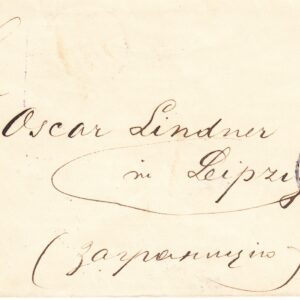 Oscar Lindner
in Leipzig
(заграницу)